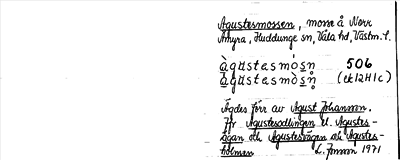 Agustesmossen, mosse å Norr
Åmyra, Huddunge sn, Våla hd, Västm. l.
àgustesmòsn 506
àgustesmòsn̥ (ek12H1c)
Ägdes förr av Agust Johansson.
Jfr Agustesodlingen el. Agustes-
ägan och Agustesvägen och Agustes-
holmen L. Jonson 1971